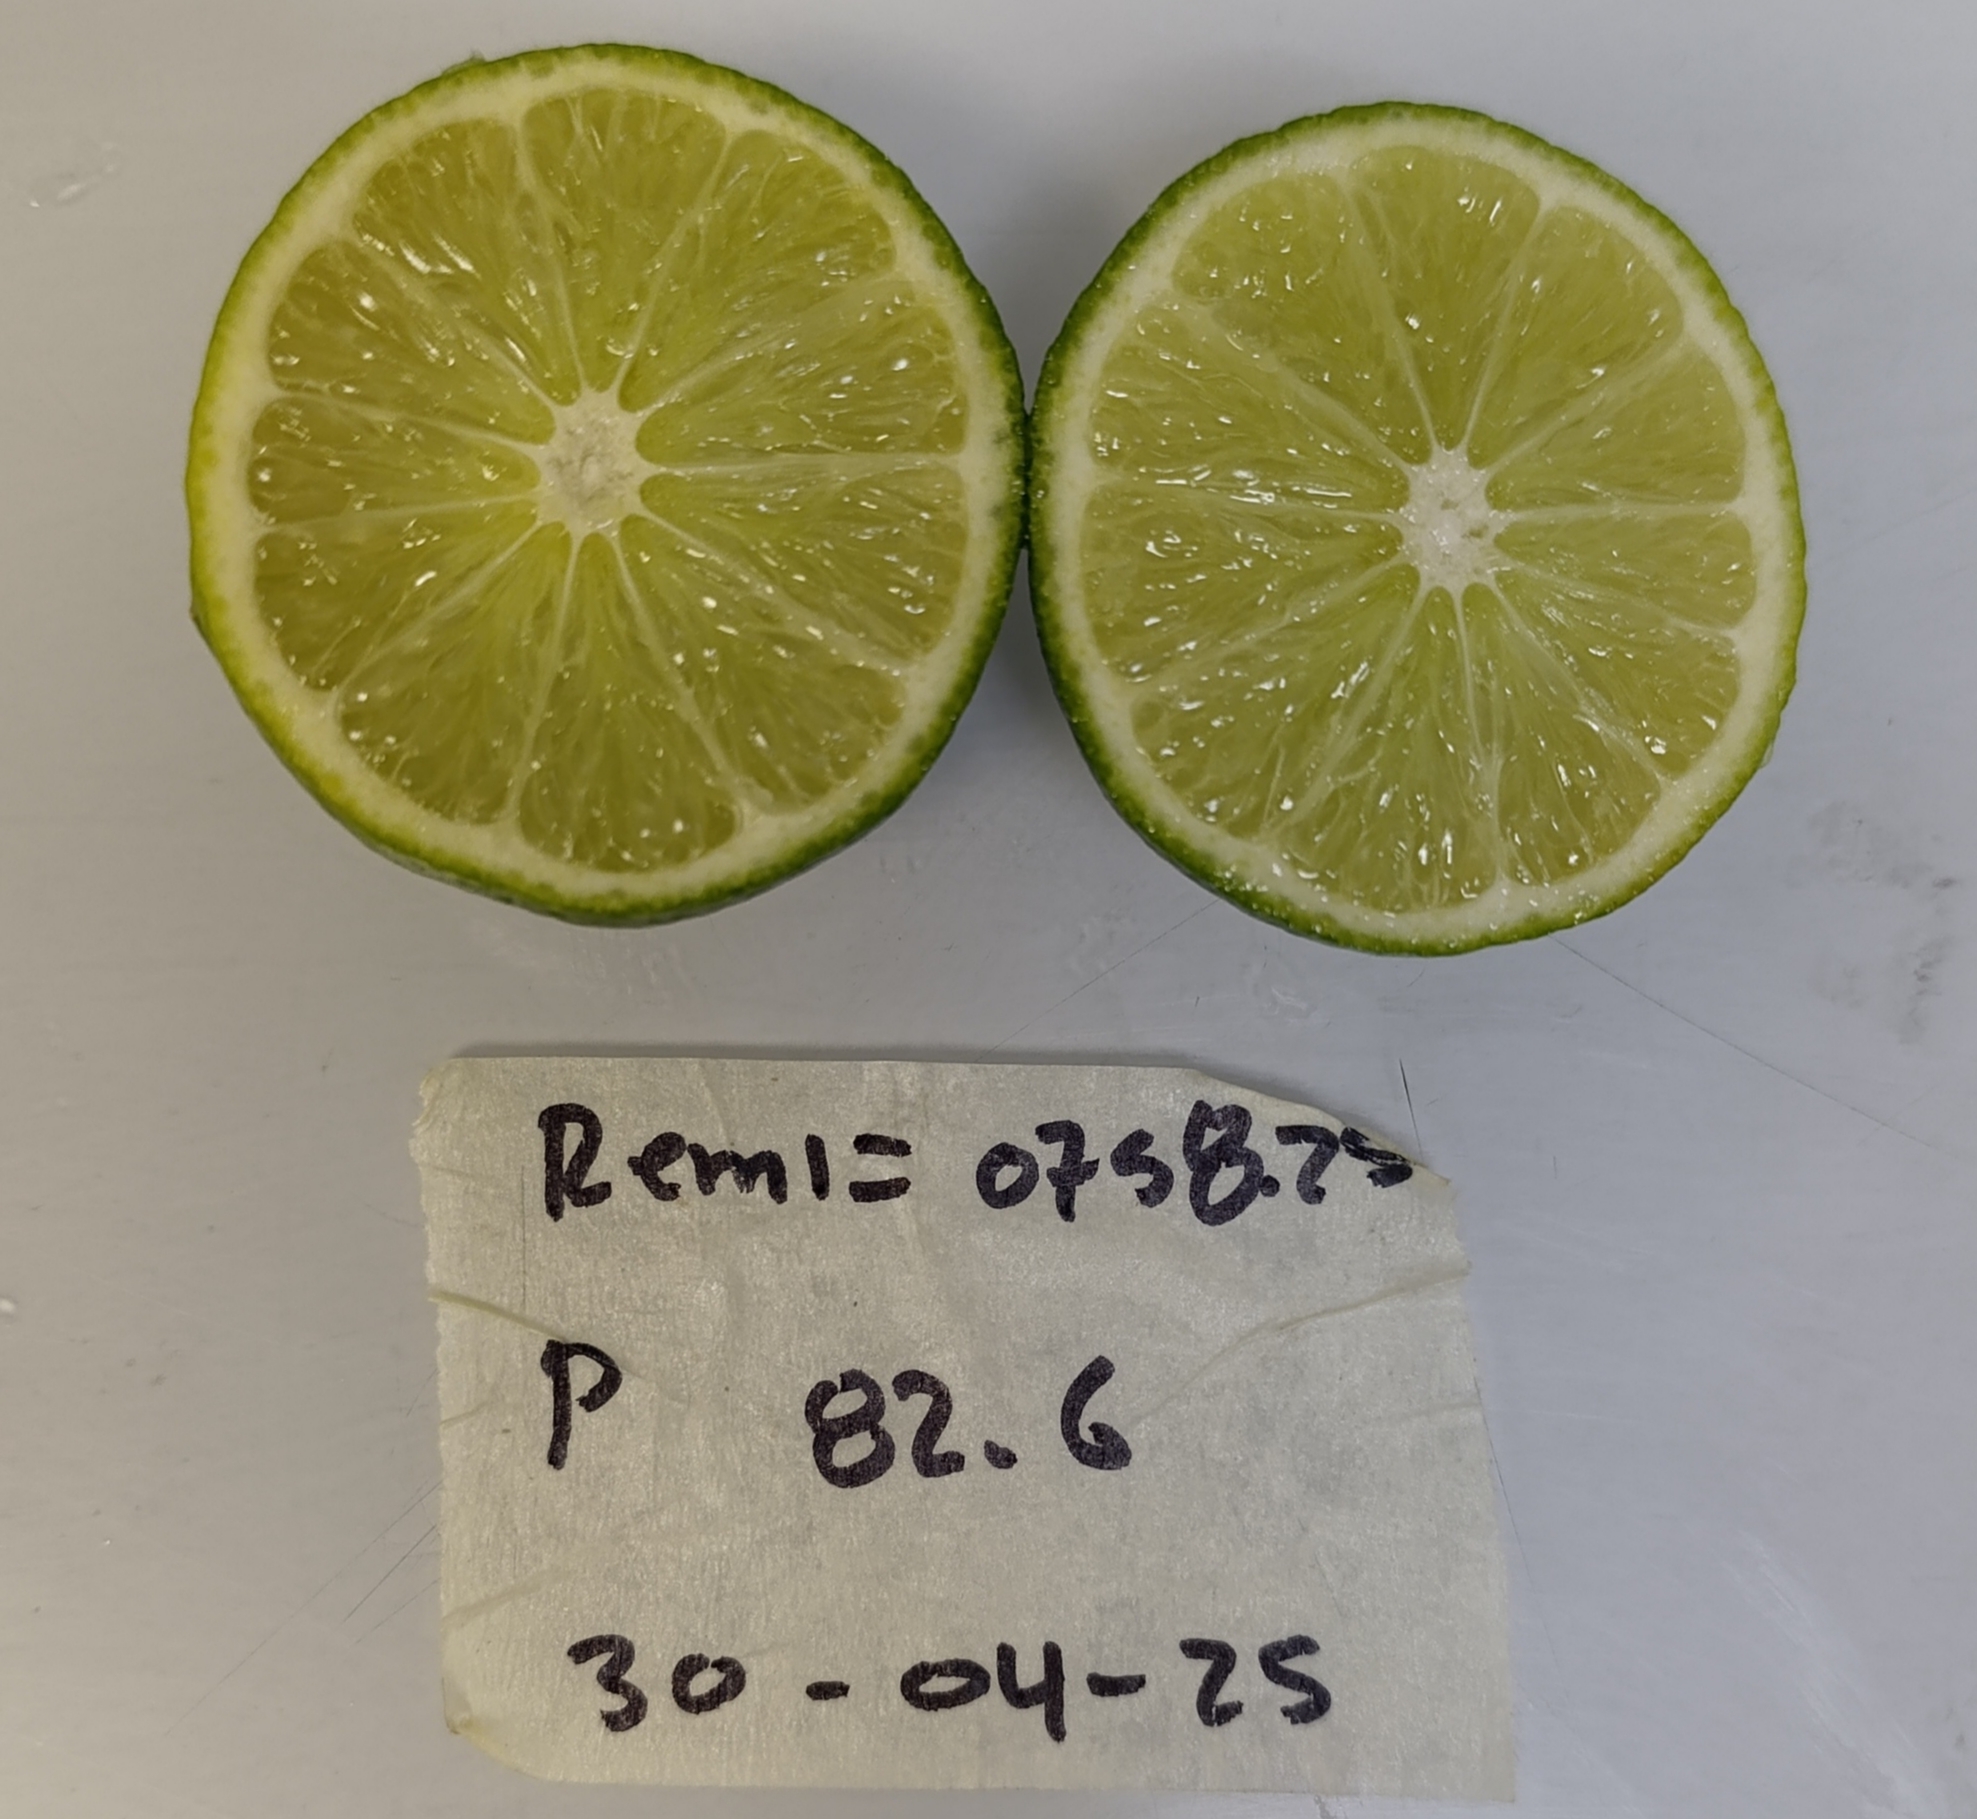 Remi= 0758.25
P 82.6
30-04-25